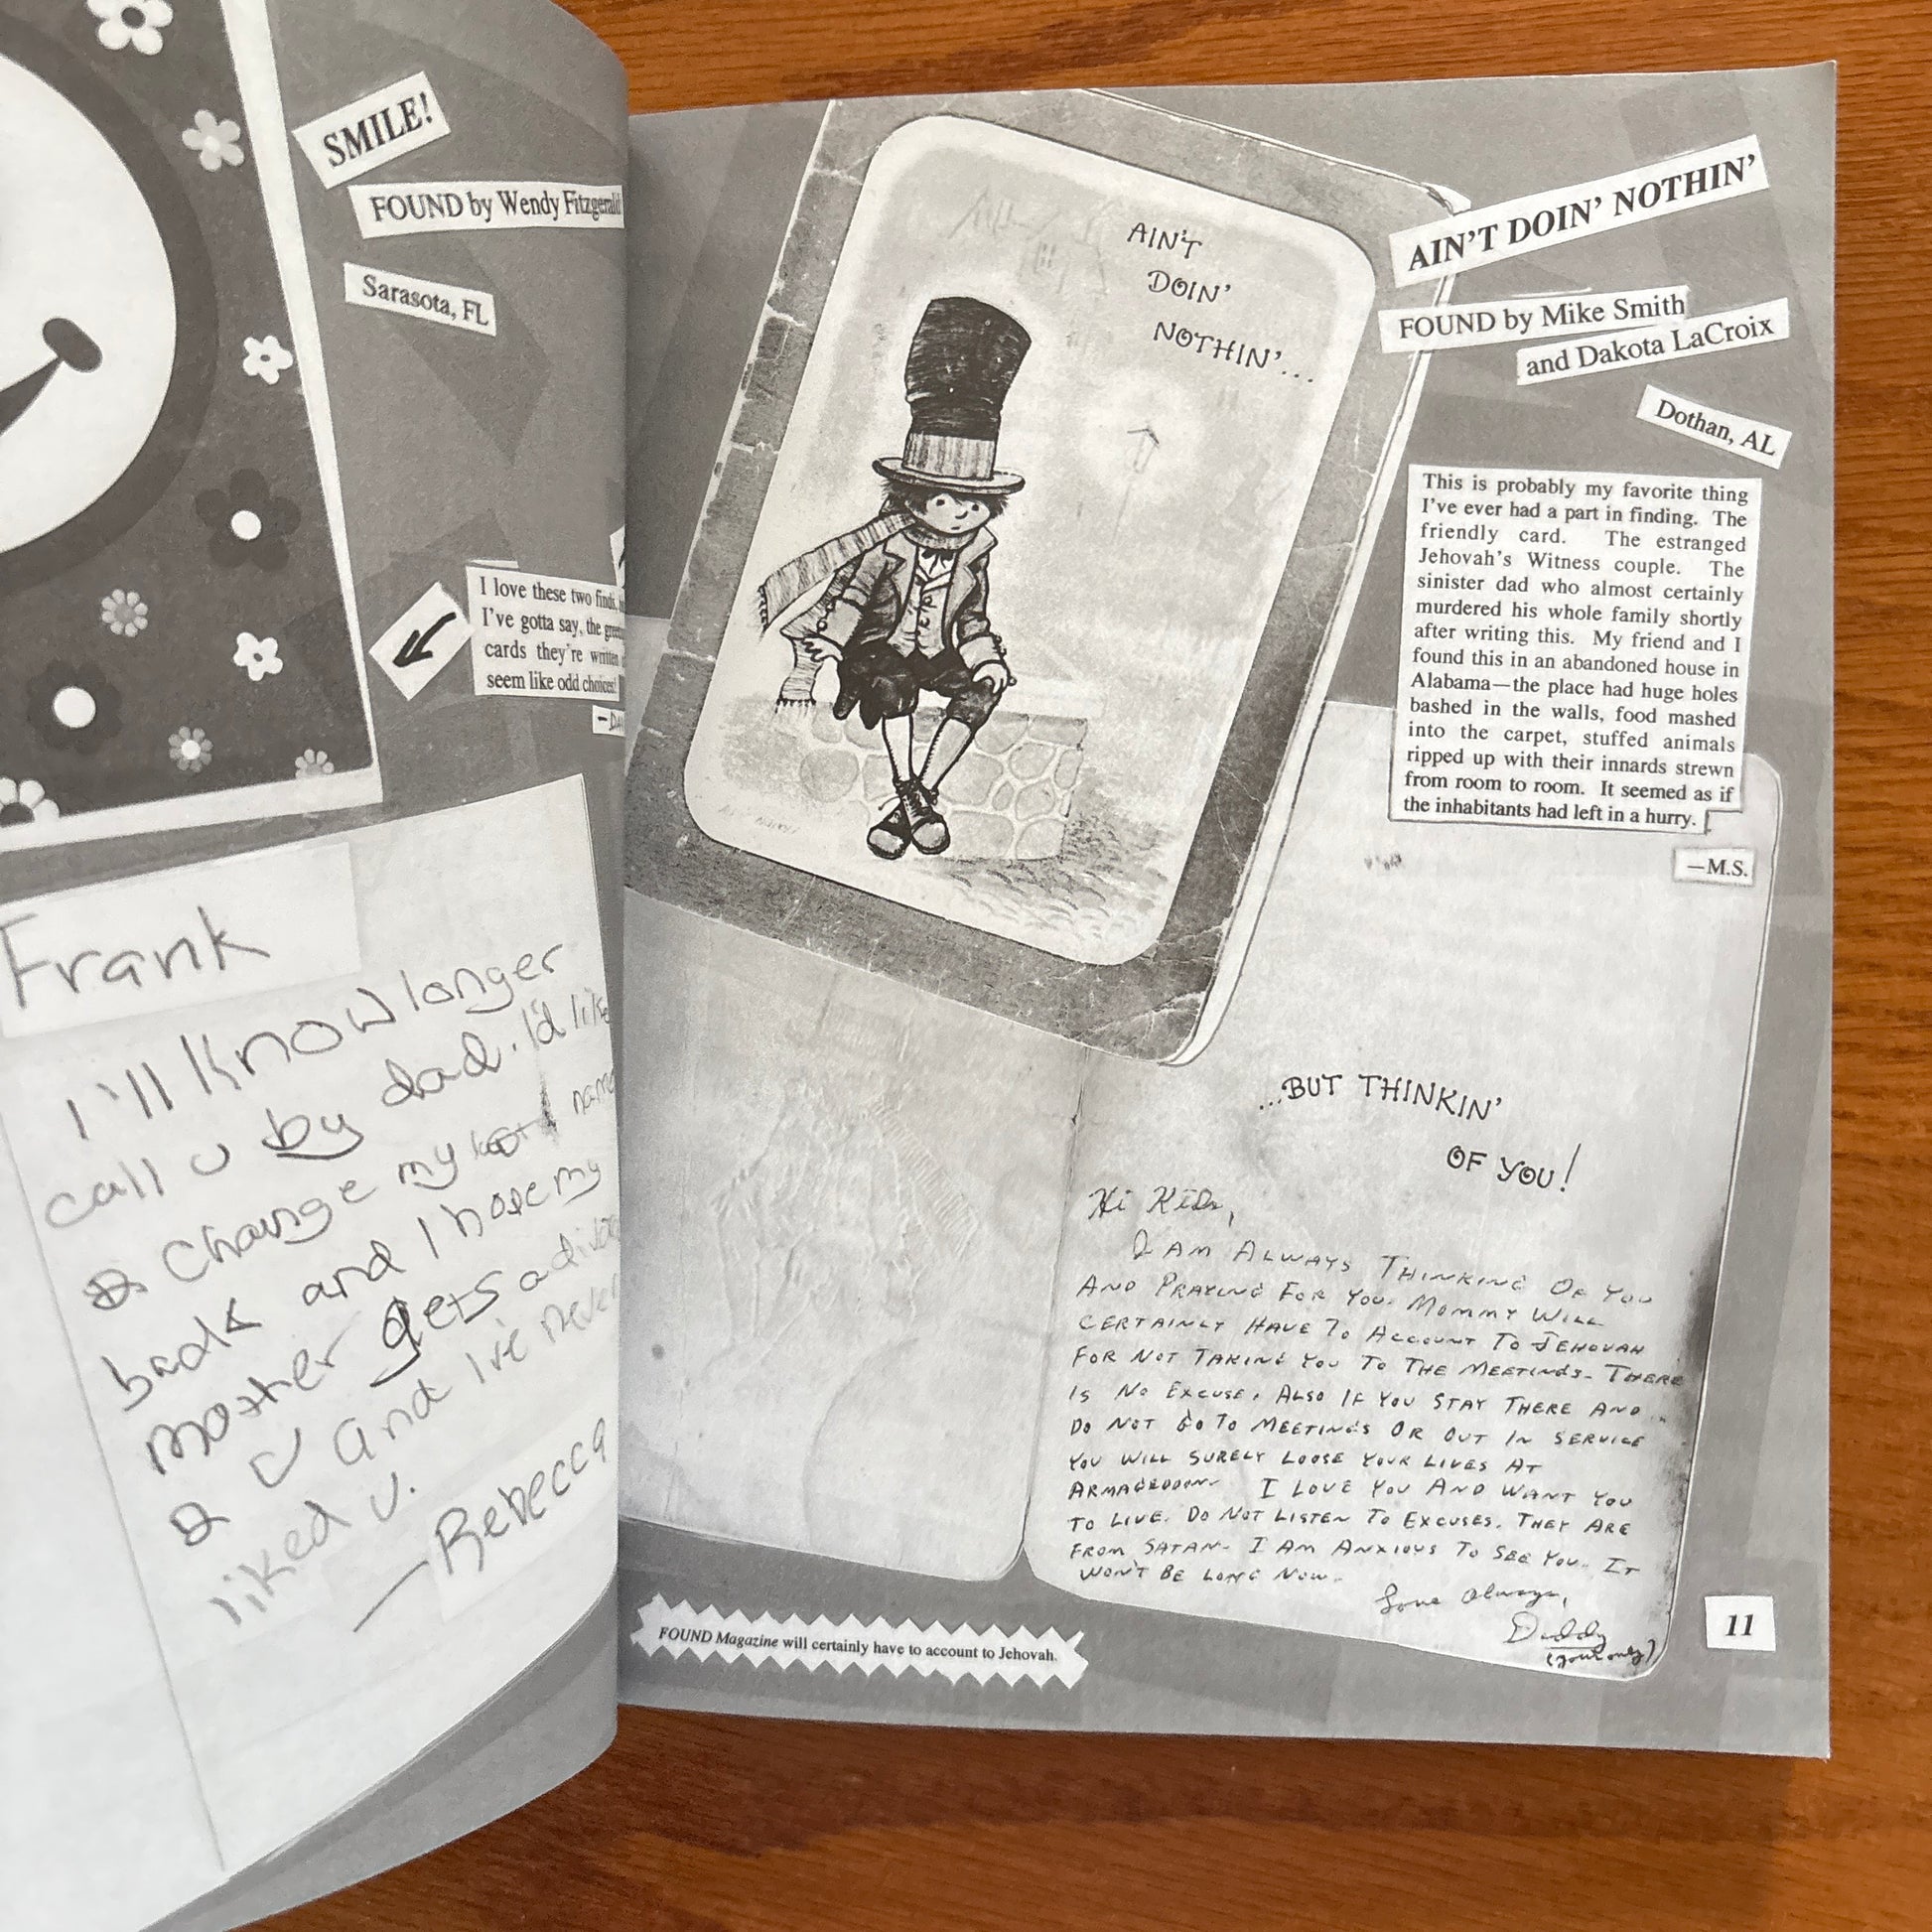 SMILE!
FOUND by Wendy Fitzgerald
Sarasota, FL
I love these two finds,
I've gotta say, the
cards they're written
seem like odd choices!
Frank
I'll Know longer
call U by dad. I'd like
Change my name
back and I hope my
mother gets a
U and I've never
liked U.
—Rebecca
AIN'T
DOIN'
NOTHIN'...
AIN'T DOIN' NOTHIN'
FOUND by Mike Smith
and Dakota LaCroix
Dothan, AL
This is probably my favorite thing
I've ever had a part in finding. The
friendly card. The estranged
Jehovah's Witness couple. The
sinister dad who almost certainly
murdered his whole family shortly
after writing this. My friend and I
found this in an abandoned house in
Alabama—the place had huge holes
bashed in the walls, food mashed
into the carpet, stuffed animals
ripped up with their innards strewn
from room to room. It seemed as if
the inhabitants had left in a hurry.
—M.S.
...BUT THINKIN'
OF YOU!
Hi Kids,
I AM ALWAYS THINKING OF YOU
AND PRAYING FOR YOU. MOMMY WILL
CERTAINLY HAVE TO ACCOUNT TO JEHOVAH
FOR NOT TAKING YOU TO THE MEETINGS. THERE
IS NO EXCUSE. ALSO IF YOU STAY THERE AND
DO NOT GO TO MEETINGS OR OUT IN SERVICE
YOU WILL SURELY LOOSE YOUR LIVES AT
ARMAGEDDON. I LOVE YOU AND WANT YOU
TO LIVE. DO NOT LISTEN TO EXCUSES. THEY ARE
FROM SATAN. I AM ANXIOUS TO SEE YOU. IT
WON'T BE LONG NOW.
Love Always,
Daddy
(your only)
FOUND Magazine will certainly have to account to Jehovah.
11